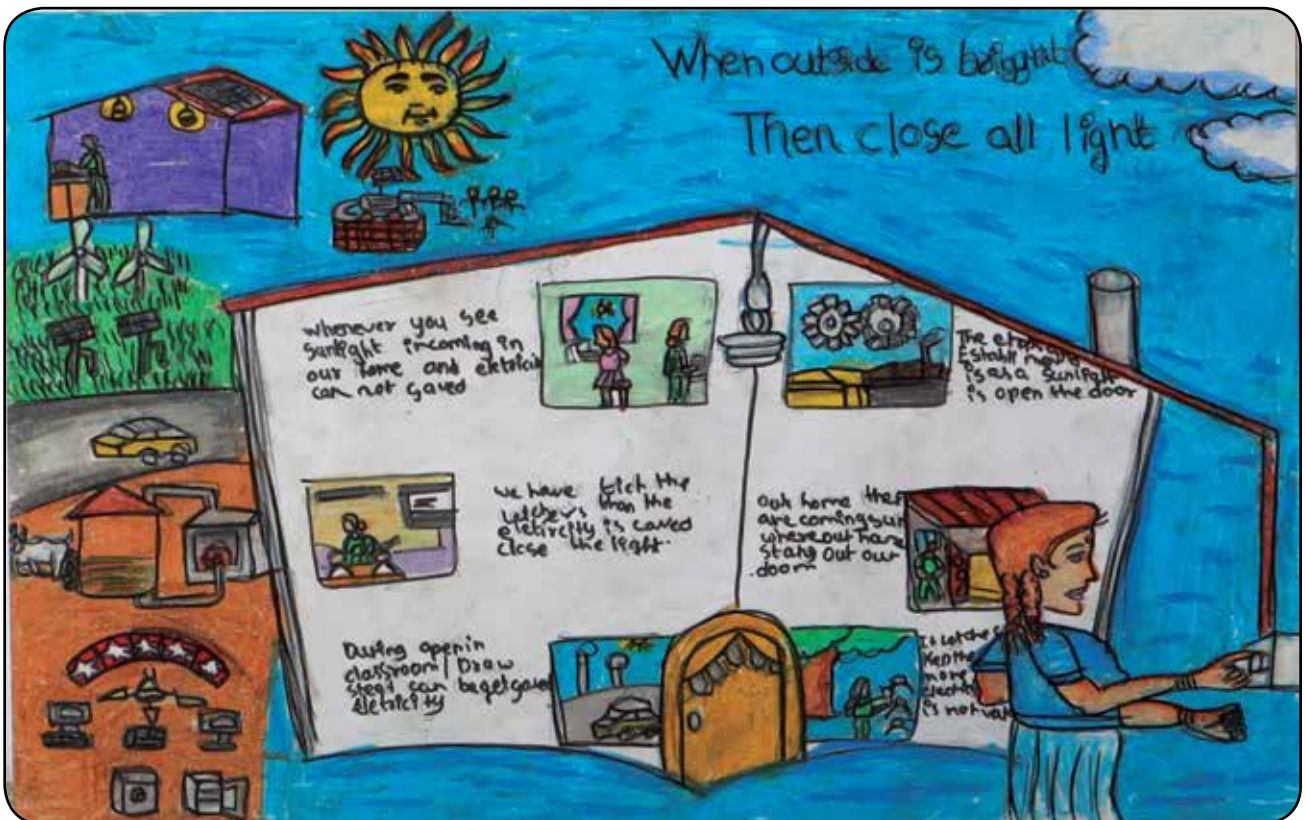 When outside is briggnt
Then close all light
whenever you see
sunlight incoming in
our home and eletricit
can not saved
The
Establ
is as a sunligh
is open the door
we have tick the
than the
eletircity is caved
close the light.
our home ther
are coming sun
where out hand
stang out our
doom
During openin
classroom / Draw
can be get gaved
eletricity
is let the
Ken the
more
electri
is not va